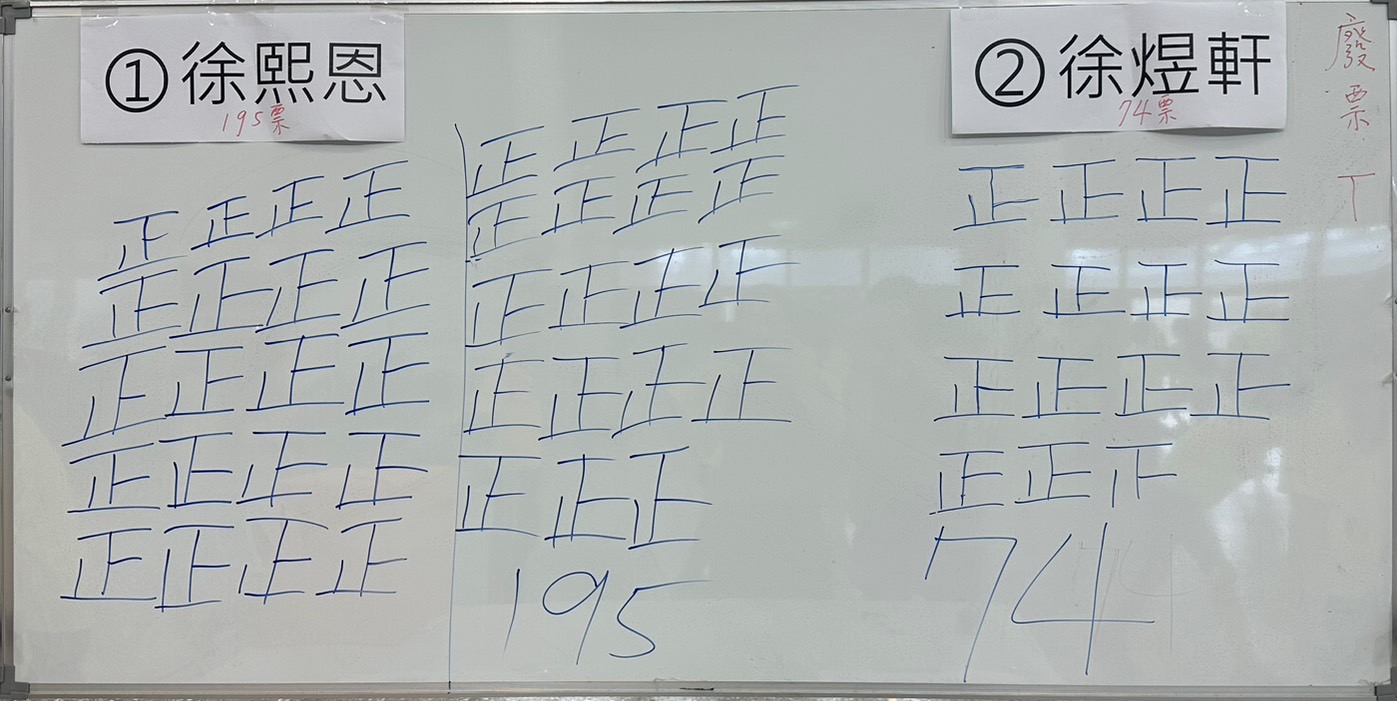 ①徐熙恩
195票
正正正正
正正正正
正正正正
正正正正
正正正正
正正正正
正正正正
正正正正
正正正正
正正正
195
②徐煜軒
74票
正正正正
正正正正
正正正正
正正
74
廢票丅